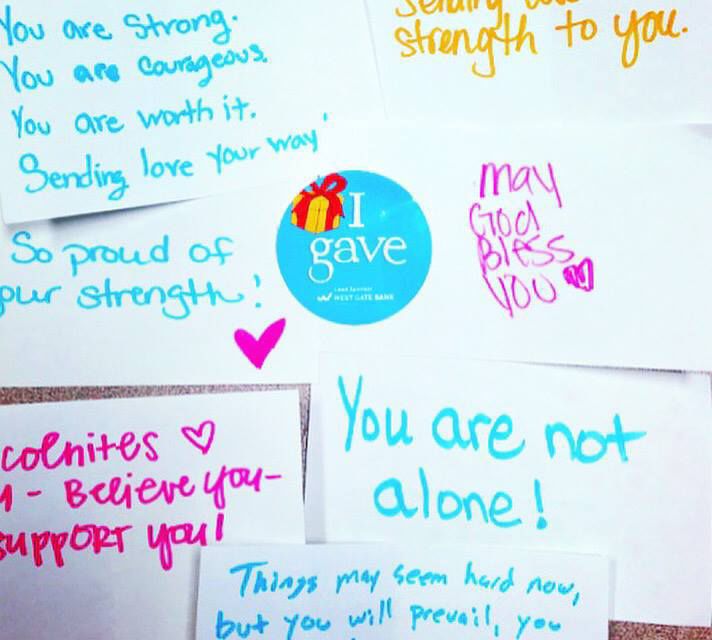 You are Strong.
You are Courageous.
You are worth it.
Sending love Your way!
Sending love
strength to you.
So proud of
our strength!
I
gave
Lead Sponsor
WEST GATE BANK
May
God
Bless
You
colnites
- Believe you -
support you!
You are not
alone!
Things may seem hard now,
but you will prevail, you